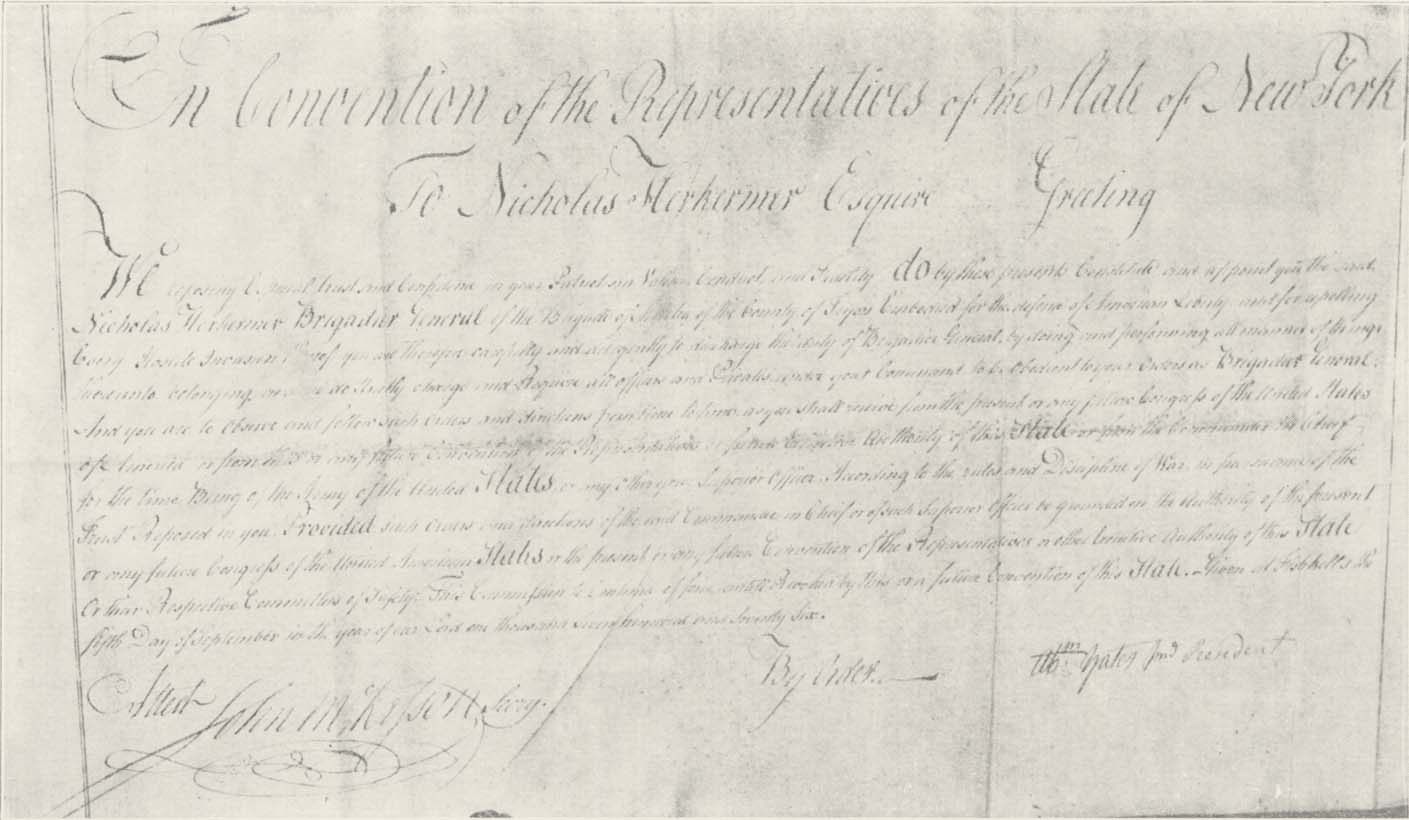 In Convention of the Representatives of the State of New York
To Nicholas Herkermer Esquire Greeting
We reposing Especial trust and Confidence in your Patriotism Valour Conduct and Fidelity do by these presents Constitute and appoint you the said
Nicholas Herkermer Brigadier General of the Brigade of Militia of the County of Tryon Embodied for the defence of American Liberty and for repelling
Every Hostile Invasion you are therefore carefully and diligently to discharge the duty of Brigadier General, by doing and performing all manner of things
thereunto belonging, and we do strictly charge and Require all officers and Privates under your Command to be Obedient to your Orders as Brigadier General.
And you are to observe and follow such Orders and directions from time to time, as you shall receive from the present or any future Congress of the United States
of America or from this or any future Convention of the Representatives or future Executive Authority of this State or from the Commander in Chief
for the time Being of the Army of the United States, or any other your Superior Officer, According to the rules and Discipline of War, in pursuance of the
Trust Reposed in you. Provided such Orders and directions of the said Commander in Chief or of such Superior Officer be grounded on the Authority of the present
or any future Congress of the United American States or the present or any future Convention of the Representatives or other Executive Authority of this State
or their Respective Committees of Safety. This Commission to Continue of force untill Revoked by this or a future Convention of this State. Given at Fishkills the
fifth Day of September in the year of our Lord one thousand seven hundred and seventy Six.
By Order.
Abm Yates Junr President
Attest John McKesson, Secry.